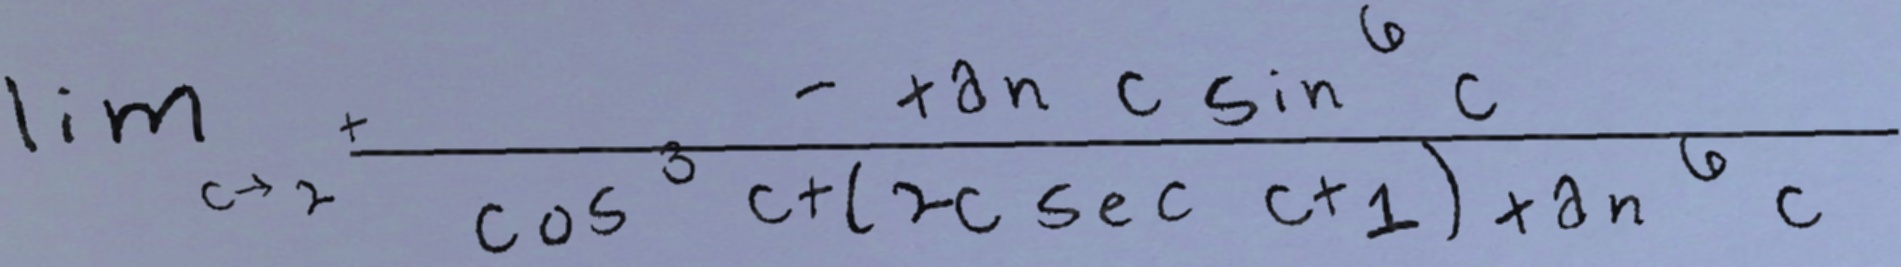 \lim_{c \to 2^{+}} \frac{- \tan c \sin^{6} c}{\cos^{3} c + (2c \sec c + 1) \tan^{6} c}